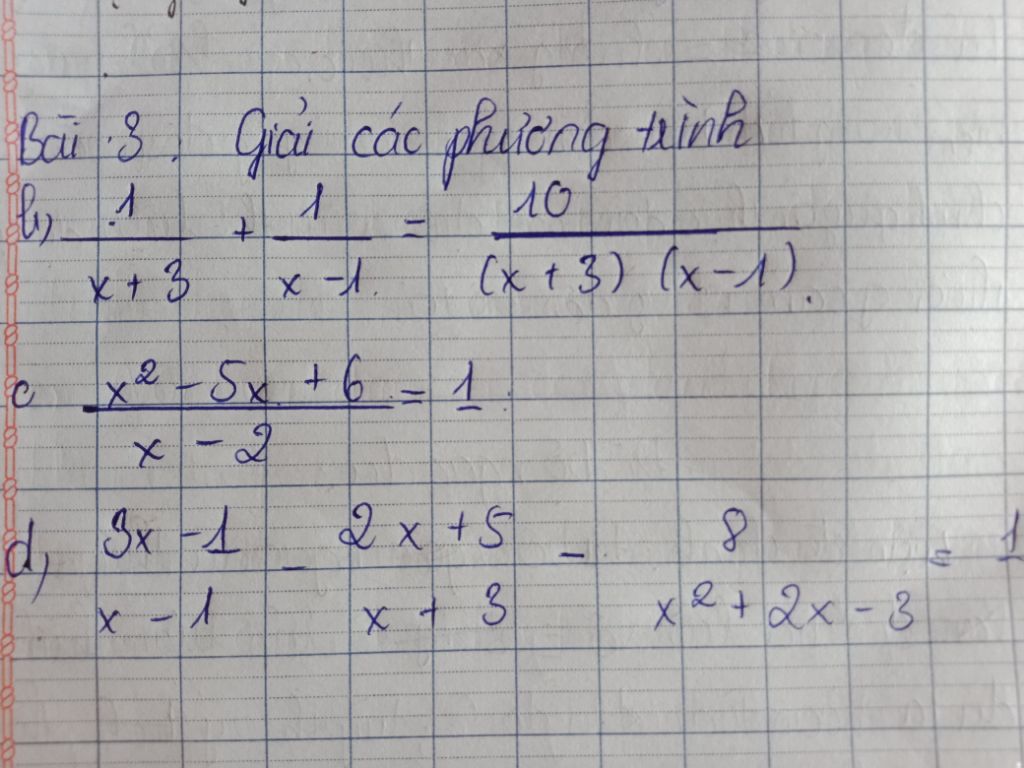 Bài 3. Giải các phương trình
b, 1/(x + 3) + 1/(x - 1) = 10/((x + 3) (x - 1))
c (x² - 5x + 6)/(x - 2) = 1
d, (3x - 1)/(x - 1) - (2x + 5)/(x + 3) - 8/(x² + 2x - 3) = 1